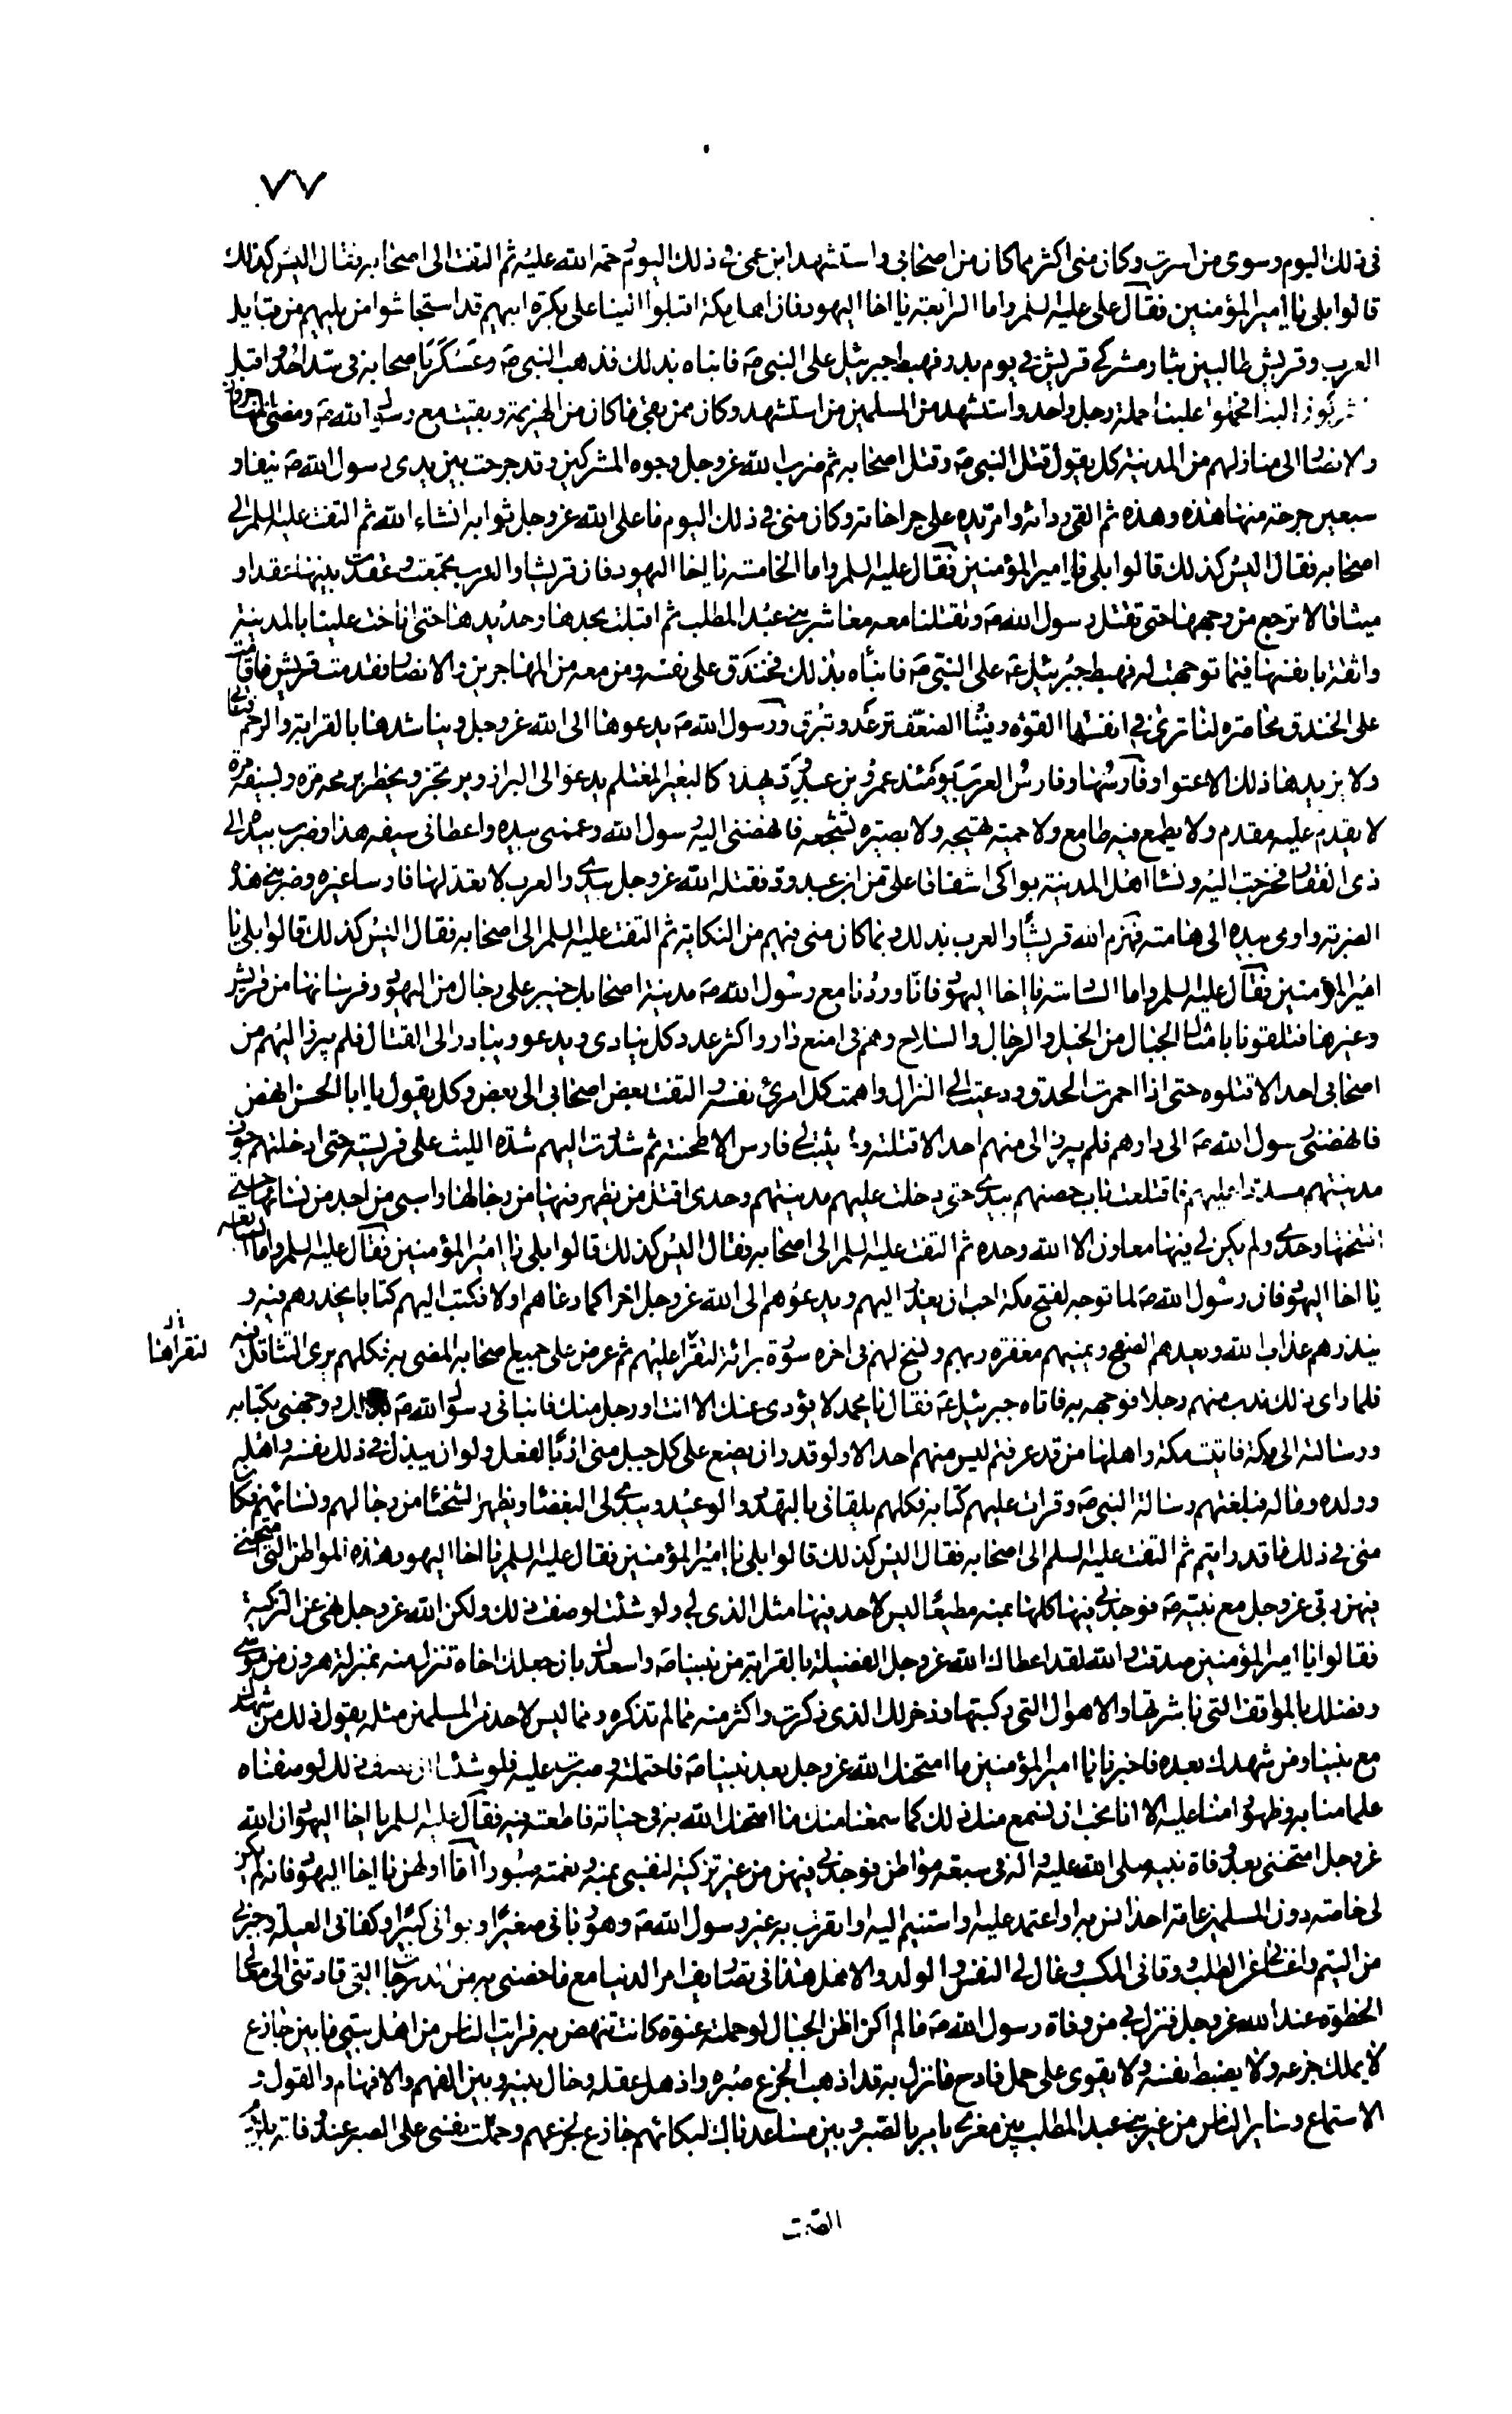 ٧٧
فى ذلك اليوم وسوى من اسرت وكان منى اكثر مما كان من اصحابى واستشهد ابن عمى فى ذلك اليوم رحمة الله عليه ثم التفت الى اصحابه فقال اليس كذلك
قالوا بلى يا امير المؤمنين فقال على عليه السلم واما الرابعة يا اخا اليهود فان اهل مكة اقبلوا الينا على بكرة ابيهم قد استحاشوا من يليهم من قبايل
العرب وقريش طالبين بثار مشركى قريش فى يوم بدر فهبط جبرئيل على النبى ص فانباه بذلك فذهب النبى ص وعسكر باصحابه فى سد احد واقبل
المشركون الينا فحملوا علينا حملة رجل واحد واستشهد من المسلمين من استشهد وكان ممن بقى ما كان من الهزيمة وبقيت مع رسول الله ص ومضى المهاجرون
والانصار الى منازلهم من المدينة كل يقول قتل النبى ص وقتل اصحابه ثم ضرب الله عز وجل وجوه المشركين وقد جرحت بين يدى رسول الله ص نيفا و
سبعين جرحة منها هذه وهذه ثم القى ردائه وامر يده على جراحاته وكان منى فى ذلك اليوم ما على الله عز وجل ثوابه انشاء الله ثم التفت عليه السلم الى
اصحابه فقال اليس كذلك قالوا بلى يا امير المؤمنين فقال عليه السلم واما الخامسة يا اخا اليهود فان قريشا والعرب تجمعت وعقدت بينها عقدا و
ميثاقا لا ترجع من وجهها حتى تقتل رسول الله ص وتقتلنا معه معاشر بنى عبد المطلب ثم اقبلت بحدها وحديدها حتى اناخت علينا بالمدينة
واثقة بانفسها فيما توجهت له فهبط جبرئيل ع على النبى ص فانبأه بذلك فخندق على نفسه ومن معه من المهاجرين والانصار فقدمت قريش فاقامت
على الخندق محاصرة لنا ترى فى انفسها القوة وفينا الضعف ترعد وتبرق ورسول الله ص يدعوها الى الله عز وجل ويناشدها بالقرابة والرحم فتابى
ولا يزيدها ذلك الا عتوا وفارسها وفارس العرب يومئذ عمرو بن عبد ود يهدر كالبعير المغتلم يدعو الى البراز ويرتجز ويخطر برمحه مرة وبسيفه مرة
لا يقدم عليه مقدم ولا يطمع فيه طامع ولا حمية تهيجه ولا بصيرة تشجعه فانهضنى اليه رسول الله وعممنى بيده واعطانى سيفه هذا وضرب بيده الى
ذى الفقار فخرجت اليه ونساء اهل المدينة بواكى اشفاقا على من ابن عبد ود فقتله الله عز وجل بيدى والعرب لا تعد لها فارسا غيره وضربنى هذه
الضربة واومى بيده الى هامته فهزم الله قريشا والعرب بذلك وبما كان منى فيهم من النكاية ثم التفت عليه السلم الى اصحابه فقال اليس كذلك قالوا بلى يا
امير المؤمنين فقال عليه السلم واما السادسة يا اخا اليهود فانا وردنا مع رسول الله ص مدينة اصحابك خيبر على رجال من اليهود وفرسانها من قريش
وغيرها فتلقونا بامثال الجبال من الخيل والرجال والسلاح وهم فى امنع دار واكثر عدد كل ينادى ويدعو ويبادر الى القتال فلم يبرز اليهم من
اصحابى احد الا قتلوه حتى اذا احمرت الحدق ودعيت الى النزال واهمت كل امرئ نفسه والتفت بعض اصحابى الى بعض وكل يقول يا ابا الحسن انهض
فانهضنى رسول الله ص الى دارهم فلم يبرز الى منهم احد الا قتلته ولا يثبت لى فارس الا طحنته ثم شددت اليهم شدة الليث على فريسته حتى ادخلتهم جوف
مدينتهم مسددا عليهم فاقتلعت باب حصنهم بيدى حتى دخلت عليهم مدينتهم وحدى اقتل من يظهر فيها من رجالها واسبى من اجد من نسائها حتى
افتتحتها وحدى ولم يكن لى فيها معاون الا الله وحده ثم التفت عليه السلم الى اصحابه فقال اليس كذلك قالوا بلى يا امير المؤمنين فقال عليه السلم واما السابعة
يا اخا اليهود فان رسول الله ص لما توجه لفتح مكة احب ان يعذر اليهم ويدعوهم الى الله عز وجل اخرا كما دعاهم اولا فكتب اليهم كتابا يحذرهم فيه و
ينذرهم عذاب الله ويعدهم الصفح ويمنيهم مغفرة ربهم ونسخ لهم فى اخره سورة برائة لتقرأ عليهم ثم عرض على جميع اصحابه المضى به فكلهم يرى التثاقل فيه
لتقراها
فلما راى ذلك ندب منهم رجلا فوجهه به فاتاه جبرئيل ع فقال يا محمد لا يؤدى عنك الا انت او رجل منك فانبانى رسول الله ص بذلك ووجهنى بكتابه
ورسالته الى مكة فاتيت مكة واهلها من قد عرفتم ليس منهم احد الا ولو قدر ان يضع على كل جبل منى اربا لفعل ولو ان يبذل فى ذلك نفسه واهله
وولده وماله فبلغتهم رسالة النبى ص وقرات عليهم كتابه فكلهم يلقانى بالتهدد والوعيد ويبدى لى البغضاء ويظهر الشحناء من رجالهم ونسائهم فكان
منى فى ذلك ما قد رايتم ثم التفت عليه السلم الى اصحابه فقال اليس كذلك قالوا بلى يا امير المؤمنين فقال عليه السلم يا اخا اليهود هذه المواطن التى امتحننى
فيهن ربى عز وجل مع نبيه ص فوجدنى فيها كلها بمنه مطيعا ليس لاحد فيها مثل الذى لى ولو شئت لوصفت ذلك ولكن الله عز وجل نهى عن التزكية
فقالوا يا امير المؤمنين صدقت والله لقد اعطاك الله عز وجل الفضيلة بالقرابة من نبينا ص واسعدك بان جعلك اخاه تنزل منه بمنزلة هرون من موسى
وفضلك بالمواقف التى باشرتها والاهوال التى ركبتها وذخر لك الذى ذكرت واكثر منه مما لم تذكره ومما ليس لاحد من المسلمين مثله يقول ذلك من شهدك
مع نبينا ومن شهدك بعده فاخبرنا يا امير المؤمنين ما امتحنك الله عز وجل بعد نبينا ص فاحتملته وصبرت عليه فلو شئنا ان نصف ذلك لوصفناه
علما منا به وظهورا منا عليه الا انا نحب ان نسمع منك ذلك كما سمعنا منك ما امتحنك الله به فى حياته فاطعته فيه فقال عليه السلم يا اخا اليهود ان الله
عز وجل امتحننى بعد وفاة نبيه صلى الله عليه واله فى سبعة مواطن فوجدنى فيهن من غير تزكية لنفسى بمنه ونعمته صبورا اما اولهن يا اخا اليهود فانه لم يكن
لى خاصة دون المسلمين عامة احد انس به او اعتمد عليه واستنيم اليه واتقرب به غير رسول الله ص وهو ربانى صغيرا وبوانى كبيرا وكفانى العيلة وجبرنى
من اليتم واغنانى عن الطلب ووقانى المكسب وعال لى النفس والولد والاهل هذا فى تصاريف امر الدنيا مع ما خصنى به من الدرجات التى قادتنى الى معالى
الحظوة عند الله عز وجل فنزل بى من وفاة رسول الله ص ما لم اكن اظن الجبال لو حملته عنوة كانت تنهض به فرايت الناس من اهل بيتى ما بين جازع
لا يملك جزعه ولا يضبط نفسه ولا يقوى على حمل فادح ما نزل به قد اذهب الجزع صبره واذهل عقله وحال بينه وبين الفهم والافهام والقول و
الاستماع وساير الناس من غير بنى عبد المطلب بين معز يامر بالصبر وبين مساعد باك لبكائهم جازع لجزعهم وحملت نفسى على الصبر عند وفاته بلزوم
الصمت